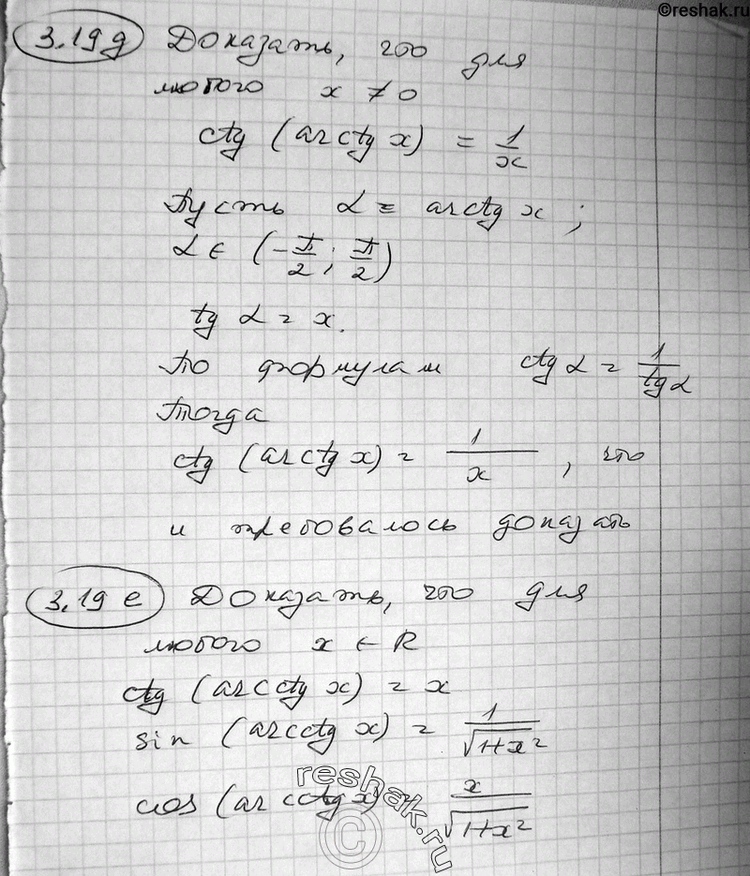 ©reshak.ru
3.19д Доказать, что для
любого x ≠ 0
ctg (arctg x) = 1/x
Пусть α = arctg x;
α ∈ (-π/2; π/2)
tg α = x.
По формулам ctg α = 1/tg α
Тогда
ctg (arctg x) = 1/x, что
и требовалось доказать
3.19 е Доказать, что для
любого x ∈ R
ctg (arcctg x) = x
sin (arcctg x) = 1/√1+x²
cos (arcctg x) = x/√1+x²
reshak.ru
©